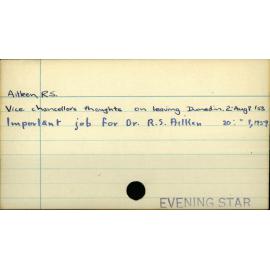 Aitken, R.S.
Vice chancellors thoughts on leaving Dunedin. 2 Aug 8 '53
Important job for Dr. R.S. Aitken 20 : " 8, 1959
EVENING STAR